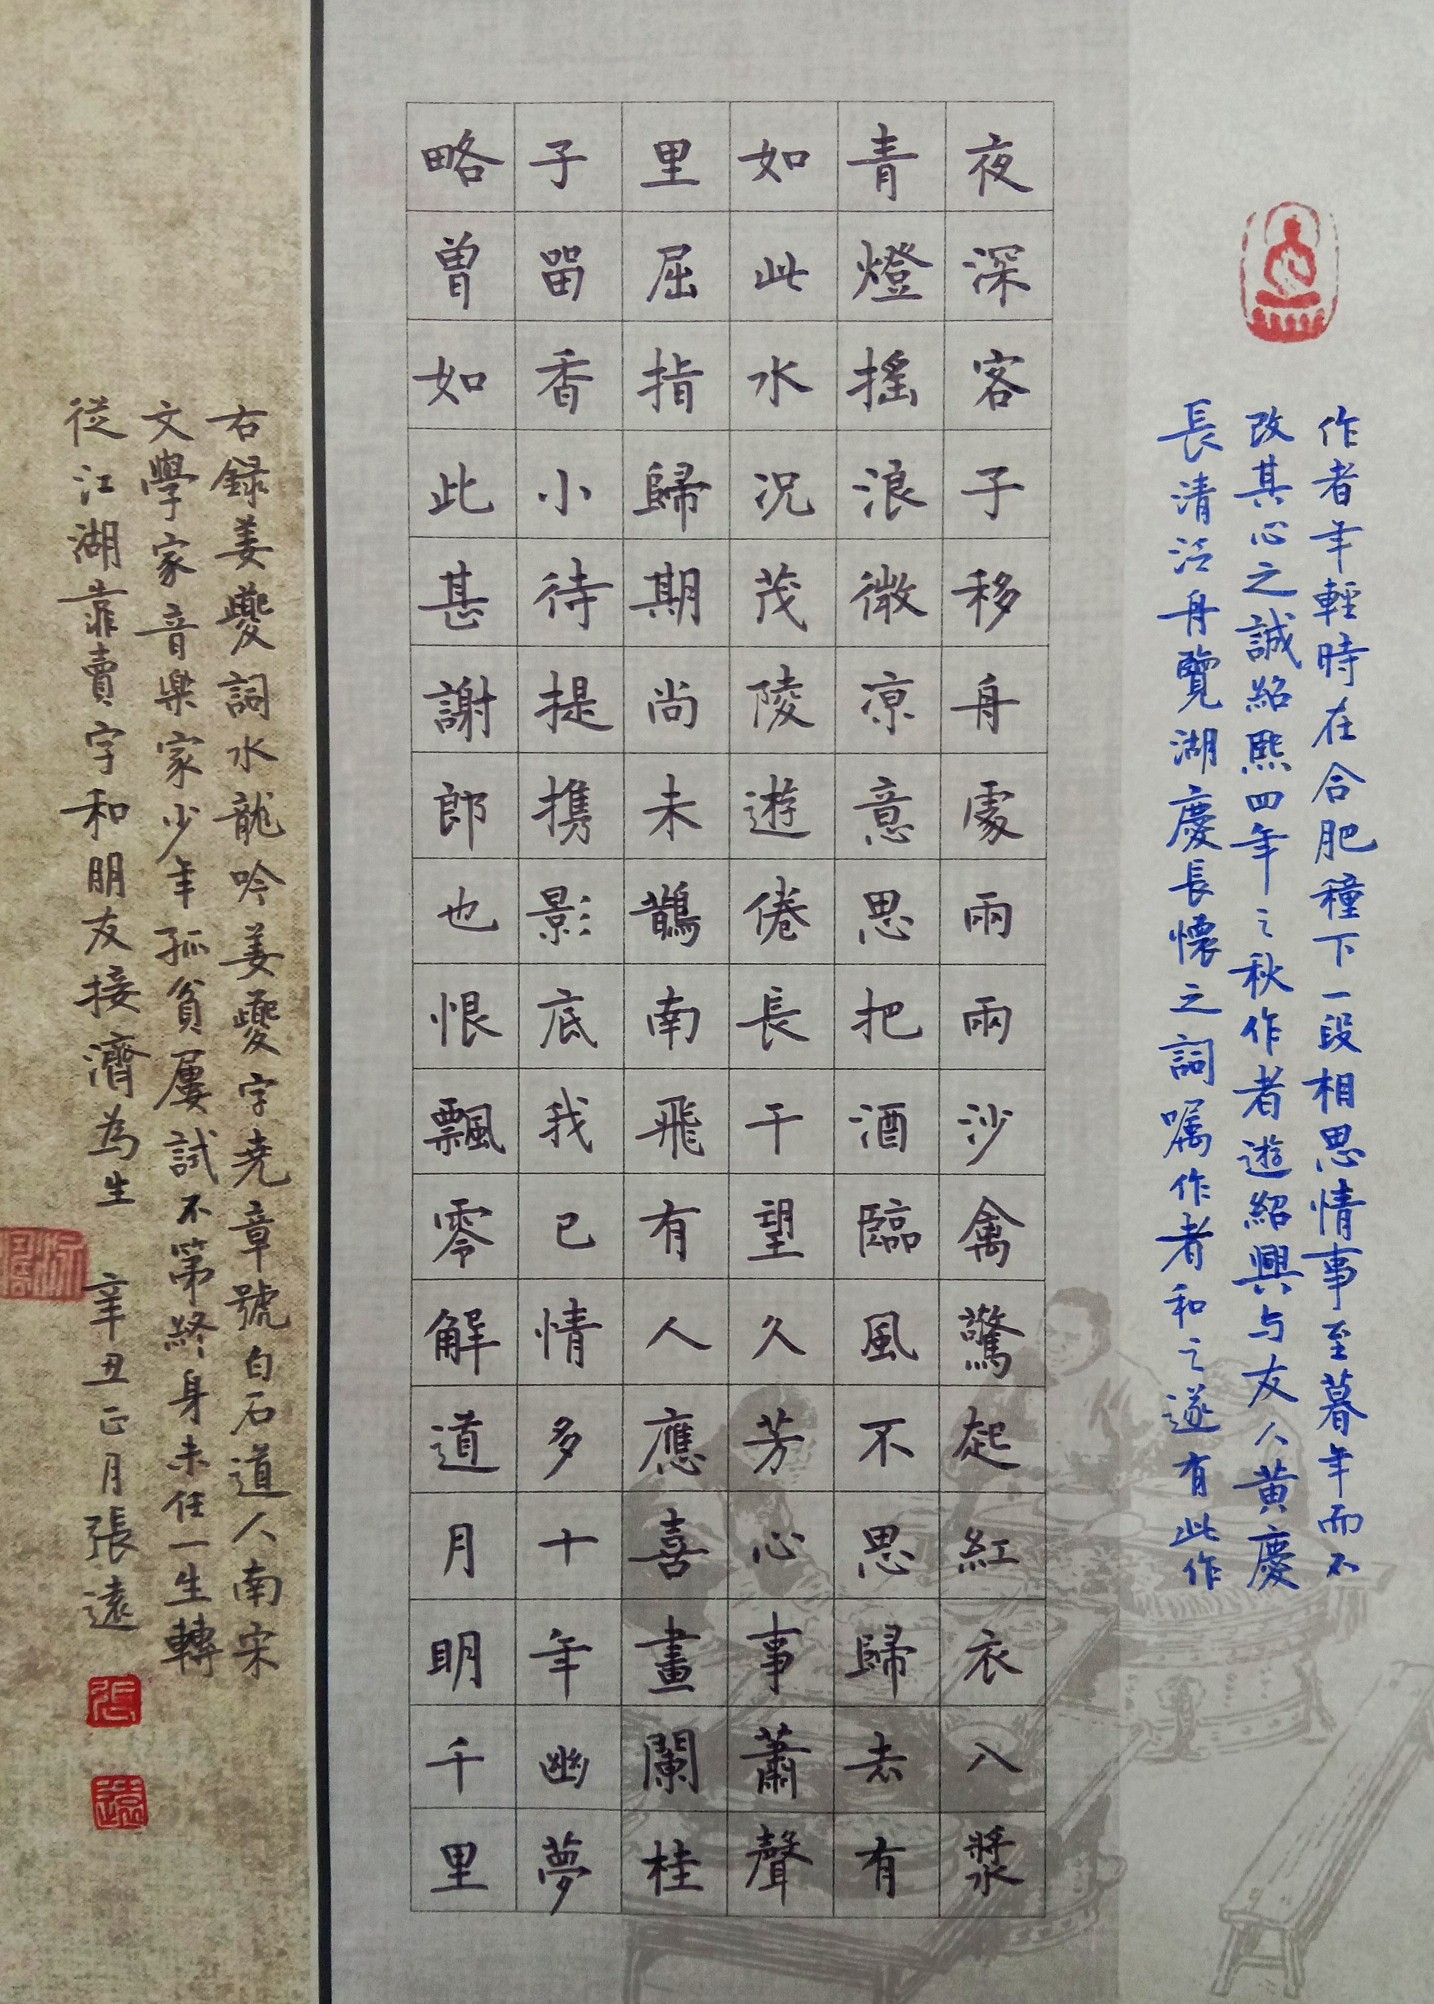 作者年輕時在合肥種下一段相思情事至暮年而不
改其心之誠紹熙四年之秋作者遊紹興与友人黄慶
長清泛舟覽湖慶長懷之詞嘱作者和之遂有此作
夜深客子移舟處兩兩沙禽驚起紅衣入槳
青燈搖浪微凉意思把酒臨風不思歸去有
如此水况茂陵遊倦長干望久芳心事蕭聲
里屈指歸期尚未鵲南飛有人應喜畫闌桂
子留香小待提携影底我已情多十年幽夢
略曾如此甚謝郎也恨飄零解道月明千里
右録姜夔詞水龍吟姜夔字尧章號白石道人南宋
文學家音楽家少年孤貧屢試不第終身未任一生轉
從江湖靠賣字和朋友接濟為生 辛丑正月張遠
张
遠